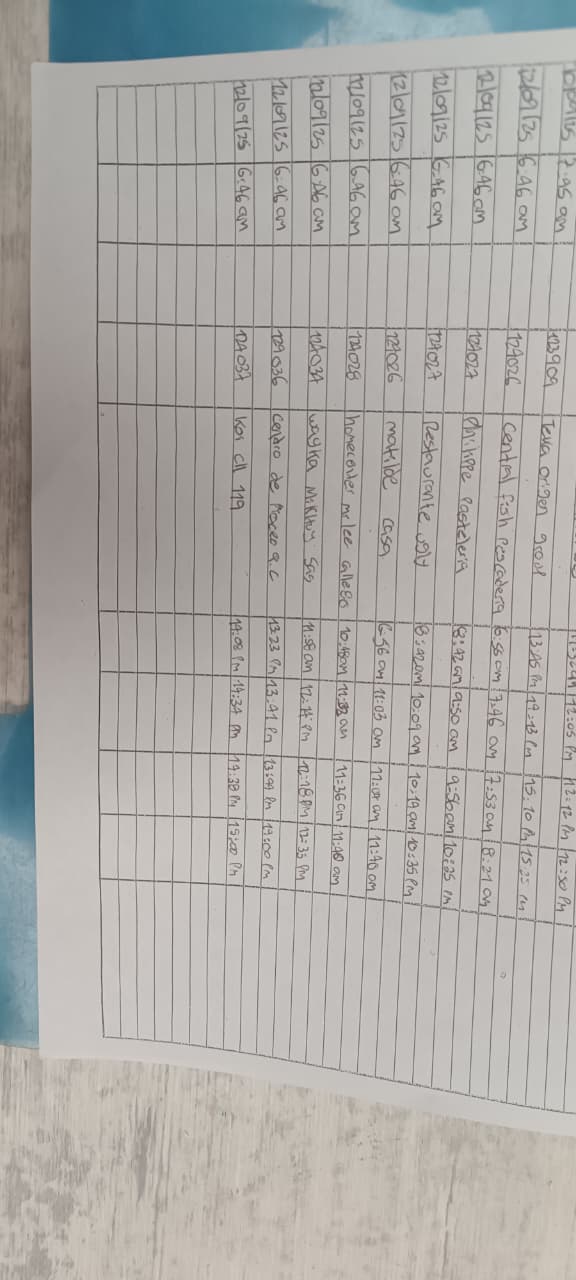 12:05 Pm 12:12 Pm 12:50 Pm
12/09/25 7:45 am 123909 Terra origen group 13:45 Pm 14:13 Pm 15:10 Pm 15:25 Pm
12/09/25 6:46 am 124026 central fish Pescaderia 6:56 am 7:46 am 7:53 am 8:21 am
12/09/25 6:46 am 124027 Philippe Pasteleria 8:42 am 9:50 am 9:56 am 10:25 Pm
12/09/25 6:46 am 124027 Restaurante ugly 8:42 am 10:09 am 10:14 am 10:35 Pm
12/09/25 6:46 am 124026 matilde casa 6:56 am 11:03 am 11:40 am
12/09/25 6:46 am 124028 homecenter mr lee calle80 10:48am 11:32 am 11:36 am 11:48 am
12/09/25 6:46 am 124034 wayka Mikhuy Sas 11:58 am 12:14 Pm 12:18 Pm 12:35 Pm
12/09/25 6:46 am 124036 centro de Proceso a.c 13:23 Pm 13:41 Pm 13:44 Pm 14:00 Pm
12/09/25 6:46 am 124037 Koi cll 119 14:08 Pm 14:34 Pm 14:38 Pm 15:00 Pm